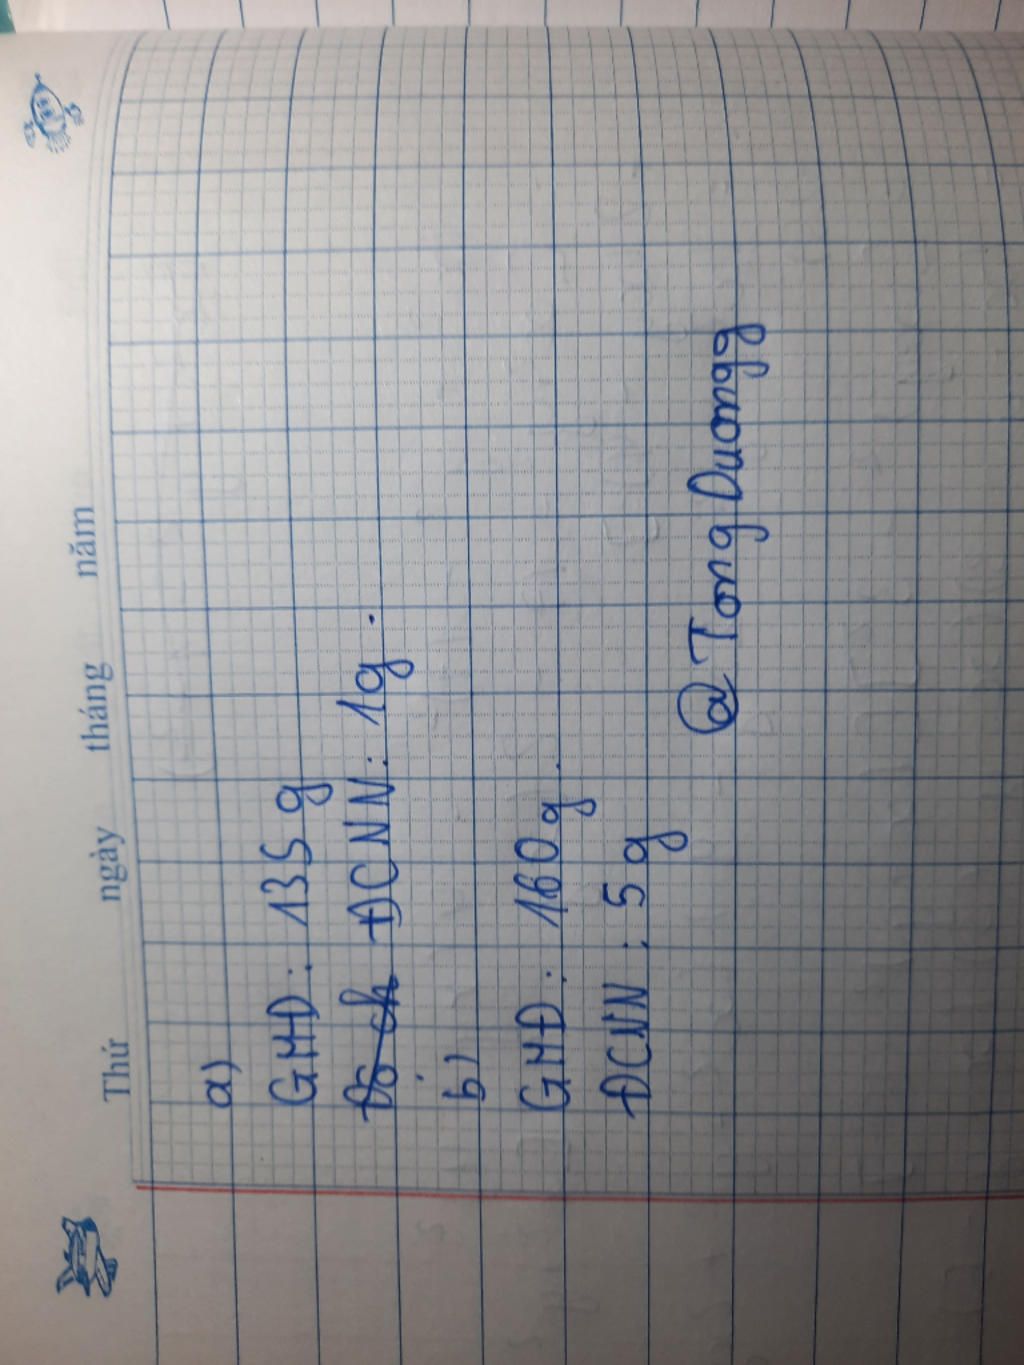 Thứ ngày tháng năm
a)
GHĐ: 135 g
ĐCNN: 1g.
b)
GHĐ: 160g.
ĐCNN: 5g
@Tong Duongg